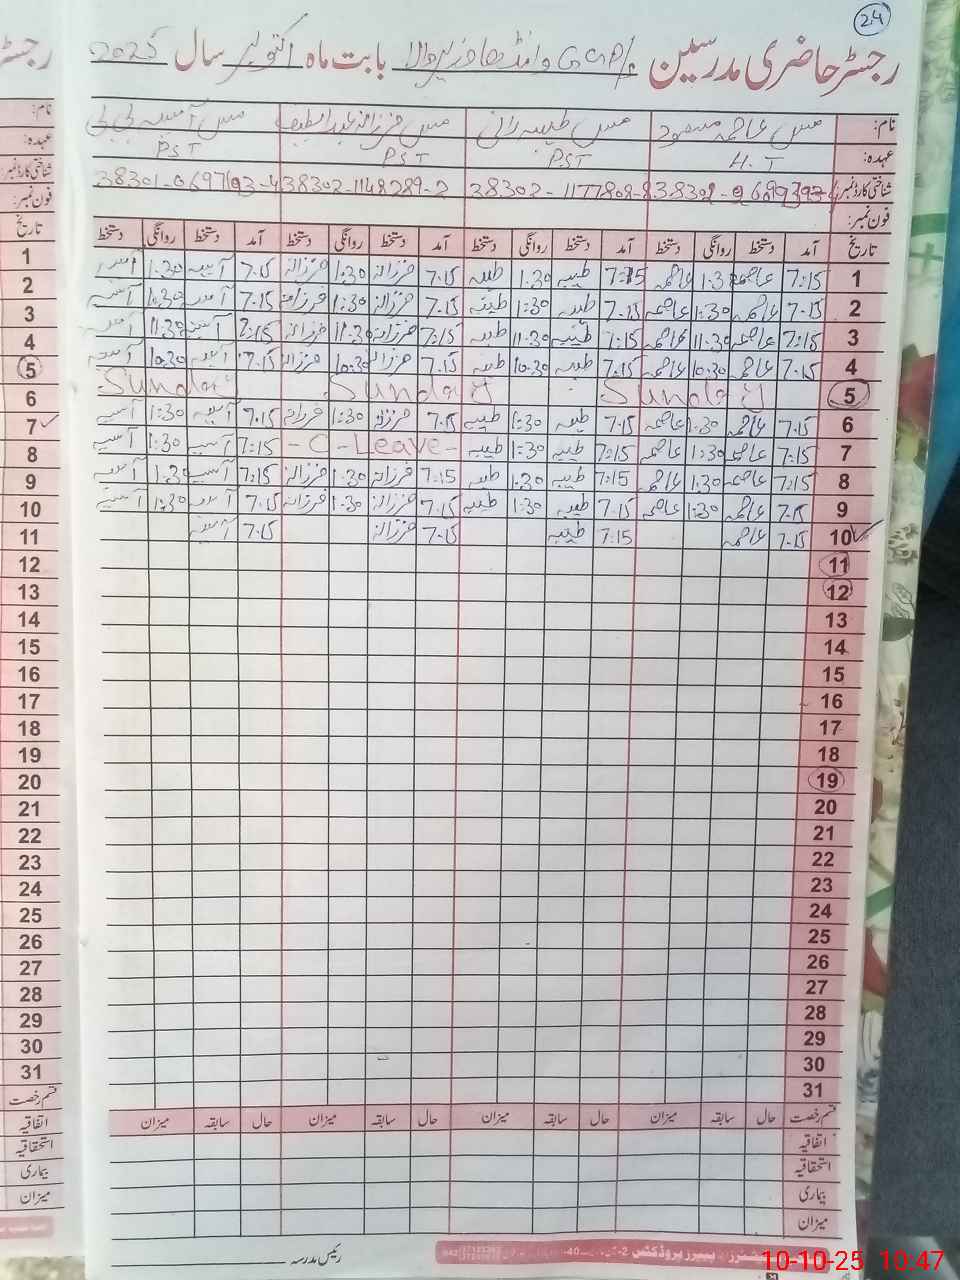 24
رجسٹر حاضری مدرسین GGP/s وانڈھا وزیر والا بابت ماہ اکتوبر سال 2025
نام: مس عاصمہ مسعود مس طیبہ رانی مس فرزانہ عبدالطیف مس آسیہ بی بی
عہدہ: H.T PST PST PST
شناختی کارڈ نمبر: 38302-1177808-8 38302-1148289-2
فون نمبر:
تاریخ آمد دستخط روانگی دستخط آمد دستخط روانگی دستخط آمد دستخط روانگی دستخط آمد دستخط روانگی دستخط
1 7:15 عاصمہ 1:30 عاصمہ 7:15 طیبہ 1:30 طیبہ 7:15 فرزانہ 1:30 فرزانہ 7:15 آسیہ 1:30 آسیہ
2 7:15 عاصمہ 1:30 عاصمہ 7:15 طیبہ 1:30 طیبہ 7:15 فرزانہ 1:30 فرزانہ 7:15 آسیہ 1:30 آسیہ
3 7:15 عاصمہ 11:30 عاصمہ 7:15 طیبہ 11:30 طیبہ 7:15 فرزانہ 11:30 فرزانہ 7:15 آسیہ 11:30 آسیہ
4 7:15 عاصمہ 10:30 عاصمہ 7:15 طیبہ 10:30 طیبہ 7:15 فرزانہ 10:30 فرزانہ 7:15 آسیہ 10:30 آسیہ
5 Sunday Sunday Sunday
6 7:15 عاصمہ 1:30 عاصمہ 7:15 طیبہ 1:30 طیبہ 7:15 فرزانہ 1:30 فرزانہ 7:15 آسیہ 1:30 آسیہ
7 7:15 عاصمہ 1:30 عاصمہ 7:15 طیبہ 1:30 طیبہ - C - Leave - 7:15 آسیہ 1:30 آسیہ
8 7:15 عاصمہ 1:30 عاصمہ 7:15 طیبہ 1:30 طیبہ 7:15 فرزانہ 1:30 فرزانہ 7:15 آسیہ 1:30 آسیہ
9 7:15 عاصمہ 1:30 عاصمہ 7:15 طیبہ 1:30 طیبہ 7:15 فرزانہ 1:30 فرزانہ 7:15 آسیہ 1:30 آسیہ
10 7:15 عاصمہ 7:15 طیبہ 7:15 فرزانہ 7:15 آسیہ
11
12
13
14
15
16
17
18
19
20
21
22
23
24
25
26
27
28
29
30
31
قسم رخصت حال سابقہ میزان حال سابقہ میزان حال سابقہ میزان حال سابقہ میزان
اتفاقیہ
استحقاقیہ
بیماری
میزان
رئیس مدرسہ
پیپرز پروڈکٹس
رجسٹر
نام:
عہدہ:
شناختی کارڈ نمبر
فون نمبر:
تاریخ
1
2
3
4
5
6
7
8
9
10
11
12
13
14
15
16
17
18
19
20
21
22
23
24
25
26
27
28
29
30
31
قسم رخصت
اتفاقیہ
استحقاقیہ
بیماری
میزان
10-10-25 10:47